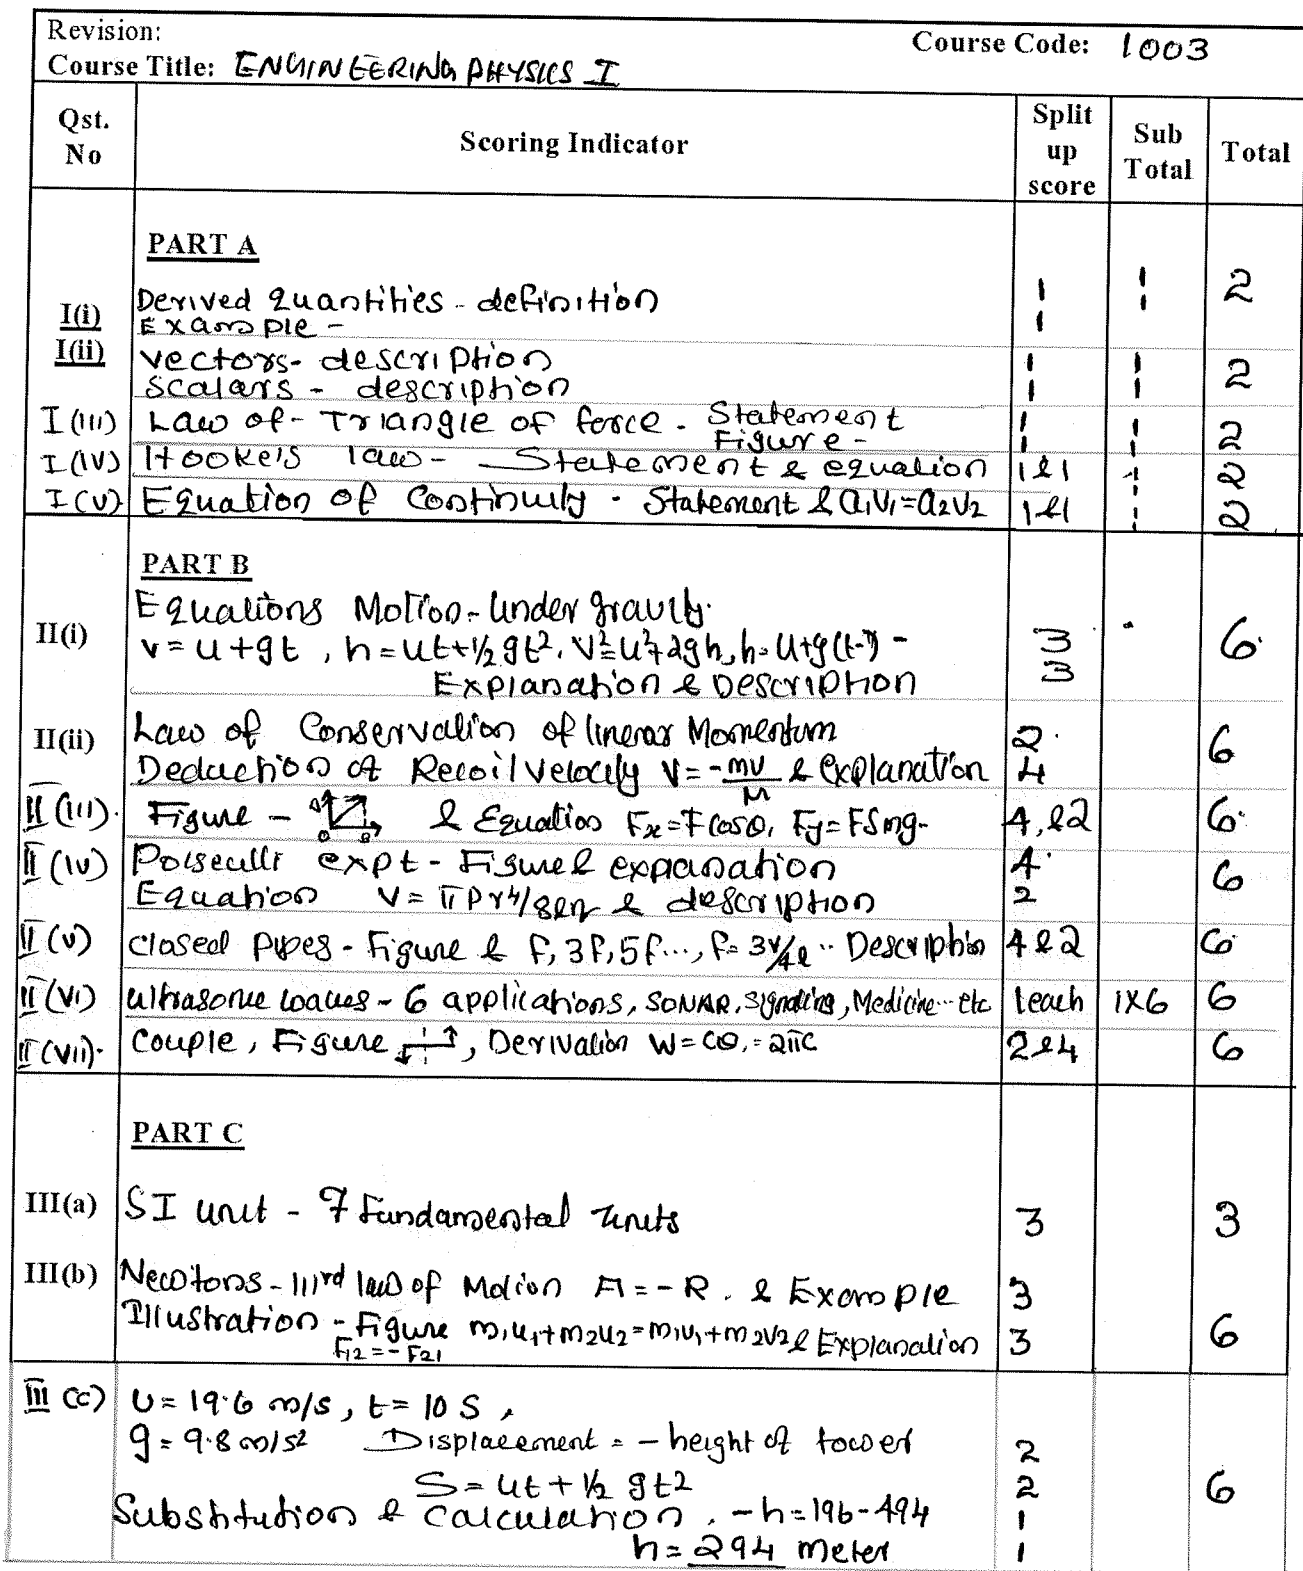 Revision:
Course Code: 1003
Course Title: ENGINEERING PHYSICS I
Qst. No
Scoring Indicator
Split up score
Sub Total
Total
PART A
I(i) Derived quantities - definition 1 1 2
Example - 1 1
I(ii) vectors - description 1 1 2
scalars - description 1 1
I(III) Law of - Triangle of force - Statement 1 1 2
Figure - 1
I(IV) Hooke's law - Statement & equation 1&1 1 2
I(V) Equation of Continuity - Statement & a₁v₁=a₂v₂ 1&1 2
PART B
II(i) Equations Motion - Under gravity. 6
v = u+gt , h = ut+½ gt², v²=u²+2gh, 3
Explanation & Description 3
II(ii) Law of Conservation of linerar Momentum 2 6
Deduction of Recoil velocity V = -mv/M & explanation 4
II(III) Figure - & Equation Fx=Fcosθ, Fy=FSinθ- 4,&2 6
II(IV) Poiseulli expt - Figure & expanation 4 6
Equation V = πPr⁴/8lη & description 2
II(V) closed pipes - Figure & f, 3f, 5f..., f= 3v/4l .. Description 4&2 6
II(VI) ultrasonic waves - 6 applications, SONAR, signaling, Medicine...etc 1each 1x6 6
II(VII). Couple, Figure , Derivation W = Cθ, = 2πC 2&4 6
PART C
III(a) SI unit - 7 Fundamental units 3 3
III(b) Newtons - IIIrd law of Motion A = -R. & Example 3 6
Illustration - Figure m₁u₁+m₂u₂=m₁v₁+m₂v₂ & Explanation 3
F₁₂=-F₂₁
III (c) U = 19.6 m/s, t = 10 S,
g = 9.8 m/s² Displacement = - height of tower 2
S = ut + ½ gt² 2 6
Substitution & calculation. -h=196-494 1
h = 294 meter 1